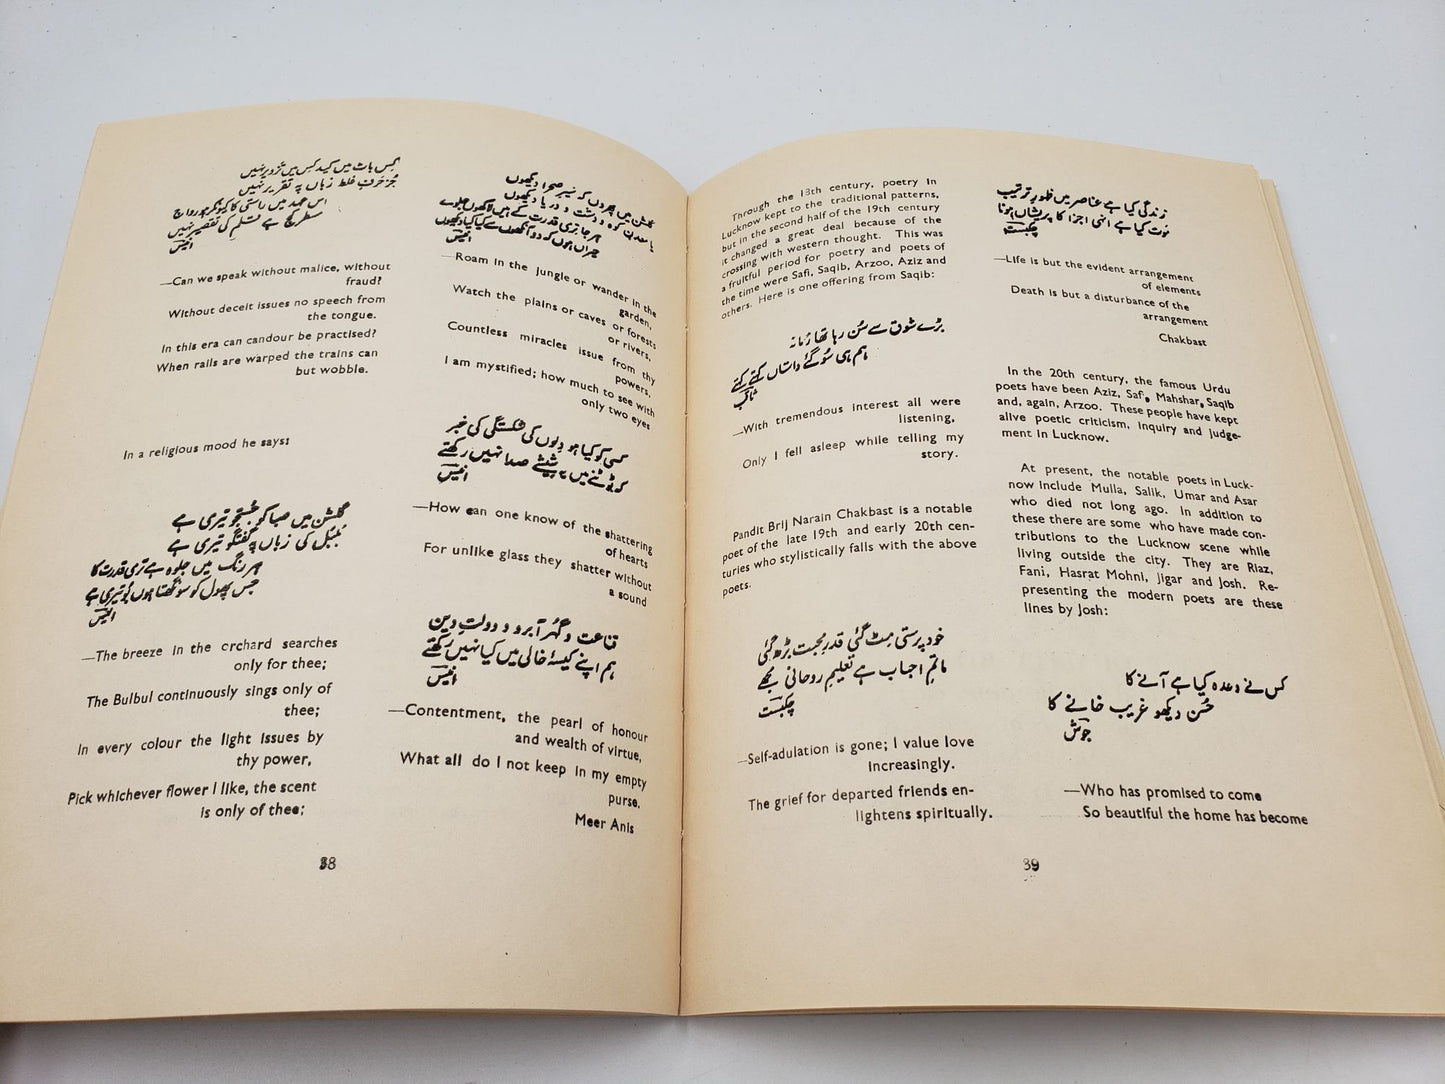 کس بات میں کید کس میں تزویر نہیں
جُز حرفِ غلط زباں پہ تقریر نہیں
اس عہد میں راستی کا کیونکر ہو رواج
سطر کج ہے قلم کی تقصیر نہیں
انیسؔ
—Can we speak without malice, without
fraud?
Without deceit issues no speech from
the tongue.
In this era can candour be practised?
When rails are warped the trains can
but wobble.
In a religious mood he says:
گلشن میں صبا کو جستجو تیری ہے
بُلبُل کی زباں پہ گفتگو تیری ہے
ہر رنگ میں جلوہ ہے تری قدرت کا
جس پھول کو سونگھتا ہوں بُو تیری ہے
انیسؔ
—The breeze in the orchard searches
only for thee;
The Bulbul continuously sings only of
thee;
In every colour the light issues by
thy power,
Pick whichever flower I like, the scent
is only of thee;
گلشن میں پھروں کہ سیر صحرا دیکھوں
یا معدن و کوہ و دشت و دریا دیکھوں
ہر جا تری قدرت کے ہیں لاکھوں جلوے
حیراں ہوں کہ دو آنکھوں سے کیا کیا دیکھوں
انیسؔ
—Roam in the jungle or wander in the
garden,
Watch the plains or caves or forests
or rivers,
Countless miracles issue from thy
powers,
I am mystified; how much to see with
only two eyes
کسی کو کیا ہو دلوں کی شکستگی کی خبر
کہ ٹوٹنے میں یہ شیشے صدا نہیں رکھتے
انیسؔ
—How can one know of the shattering
of hearts
For unlike glass they shatter without
a sound
قناعت و گہُر آبرو و دولتِ دین
ہم اپنے کیسۂ خالی میں کیا نہیں رکھتے
انیسؔ
—Contentment, the pearl of honour
and wealth of virtue,
What all do I not keep in my empty
purse.
Meer Anis
38
Through the 13th century, poetry in
Lucknow kept to the traditional patterns,
but in the second half of the 19th century
it changed a great deal because of the
crossing with western thought. This was
a fruitful period for poetry and poets of
the time were Safi, Saqib, Arzoo, Aziz and
others. Here is one offering from Saqib:
بڑے شوق سے سُن رہا تھا زمانہ
ہم ہی سو گئے داستاں کہتے کہتے
ثاقبؔ
—With tremendous interest all were
listening,
Only I fell asleep while telling my
story.
Pandit Brij Narain Chakbast is a notable
poet of the late 19th and early 20th cen-
turies who stylistically falls with the above
poets.
خود پرستی مِٹ گئی قدرِ محبت بڑھ گئی
ماتمِ احباب ہے تعلیمِ روحانی مجھے
چکبستؔ
—Self-adulation is gone; I value love
increasingly.
The grief for departed friends en-
lightens spiritually.
زندگی کیا ہے عناصر میں ظہورِ ترتیب
موت کیا ہے انہی اجزا کا پریشاں ہونا
چکبستؔ
—Life is but the evident arrangement
of elements
Death is but a disturbance of the
arrangement
Chakbast
In the 20th century, the famous Urdu
poets have been Aziz, Saf, Mahshar, Saqib
and, again, Arzoo. These people have kept
alive poetic criticism, inquiry and judge-
ment in Lucknow.
At present, the notable poets in Luck-
now include Mulla, Salik, Umar and Asar
who died not long ago. In addition to
these there are some who have made con-
tributions to the Lucknow scene while
living outside the city. They are Riaz,
Fani, Hasrat Mohni, Jigar and Josh. Re-
presenting the modern poets are these
lines by Josh:
کس نے وعدہ کیا ہے آنے کا
حُسن دیکھو غریب خانے کا
جوشؔ
—Who has promised to come
So beautiful the home has become
39